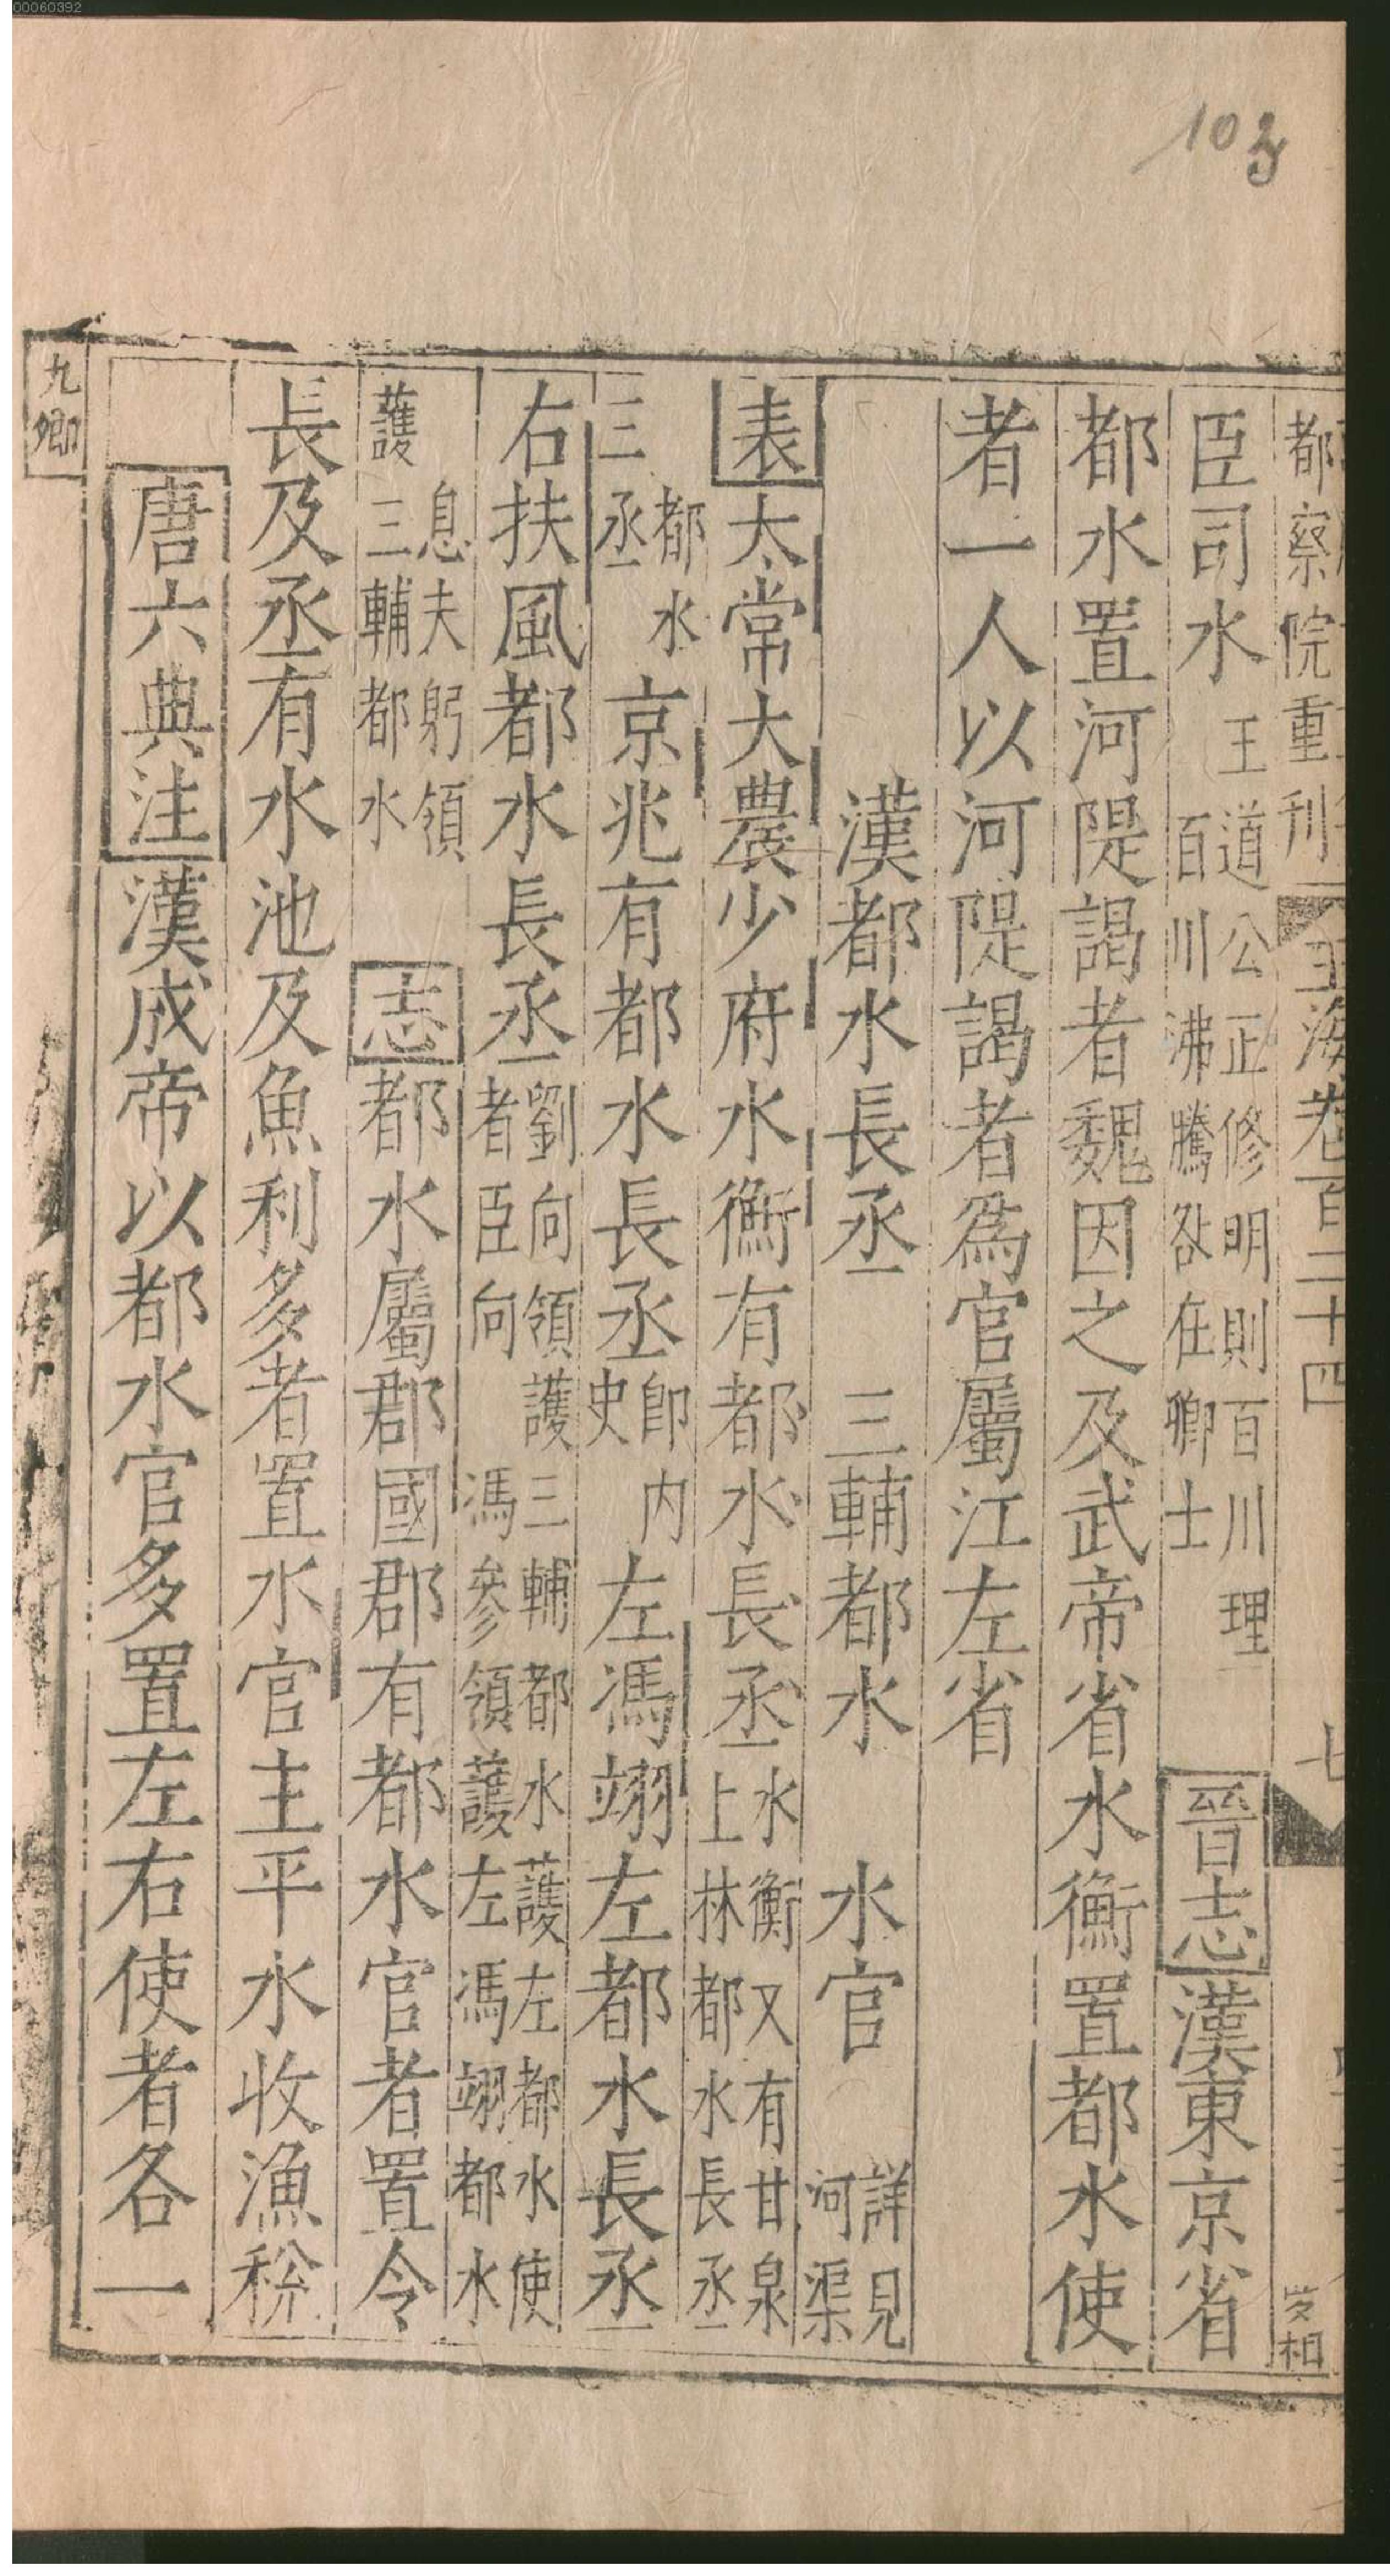 00060392
103
都察院重刊 玉海卷百二十四 七
臣司水王道公正修明則百川理百川沸騰咎在卿士晉志漢東京省
都水置河隄謁者魏因之及武帝省水衡置都水使
者一人以河隄謁者爲官屬江左省
漢都水長丞 三輔都水 水官詳見河渠
表太常大農少府水衡有都水長丞水衡又有甘泉上林都水長丞
三都水丞京兆有都水長丞卽内史左馮翊左都水長丞
右扶風都水長丞劉向領護三輔都水護左都水使者臣向馮參領護左馮翊都水
息夫躬領護三輔都水志都水屬郡國郡有都水官者置令
長及丞有水池及魚利多者置水官主平水收漁稅
唐六典注漢成帝以都水官多置左右使者各一
九卿